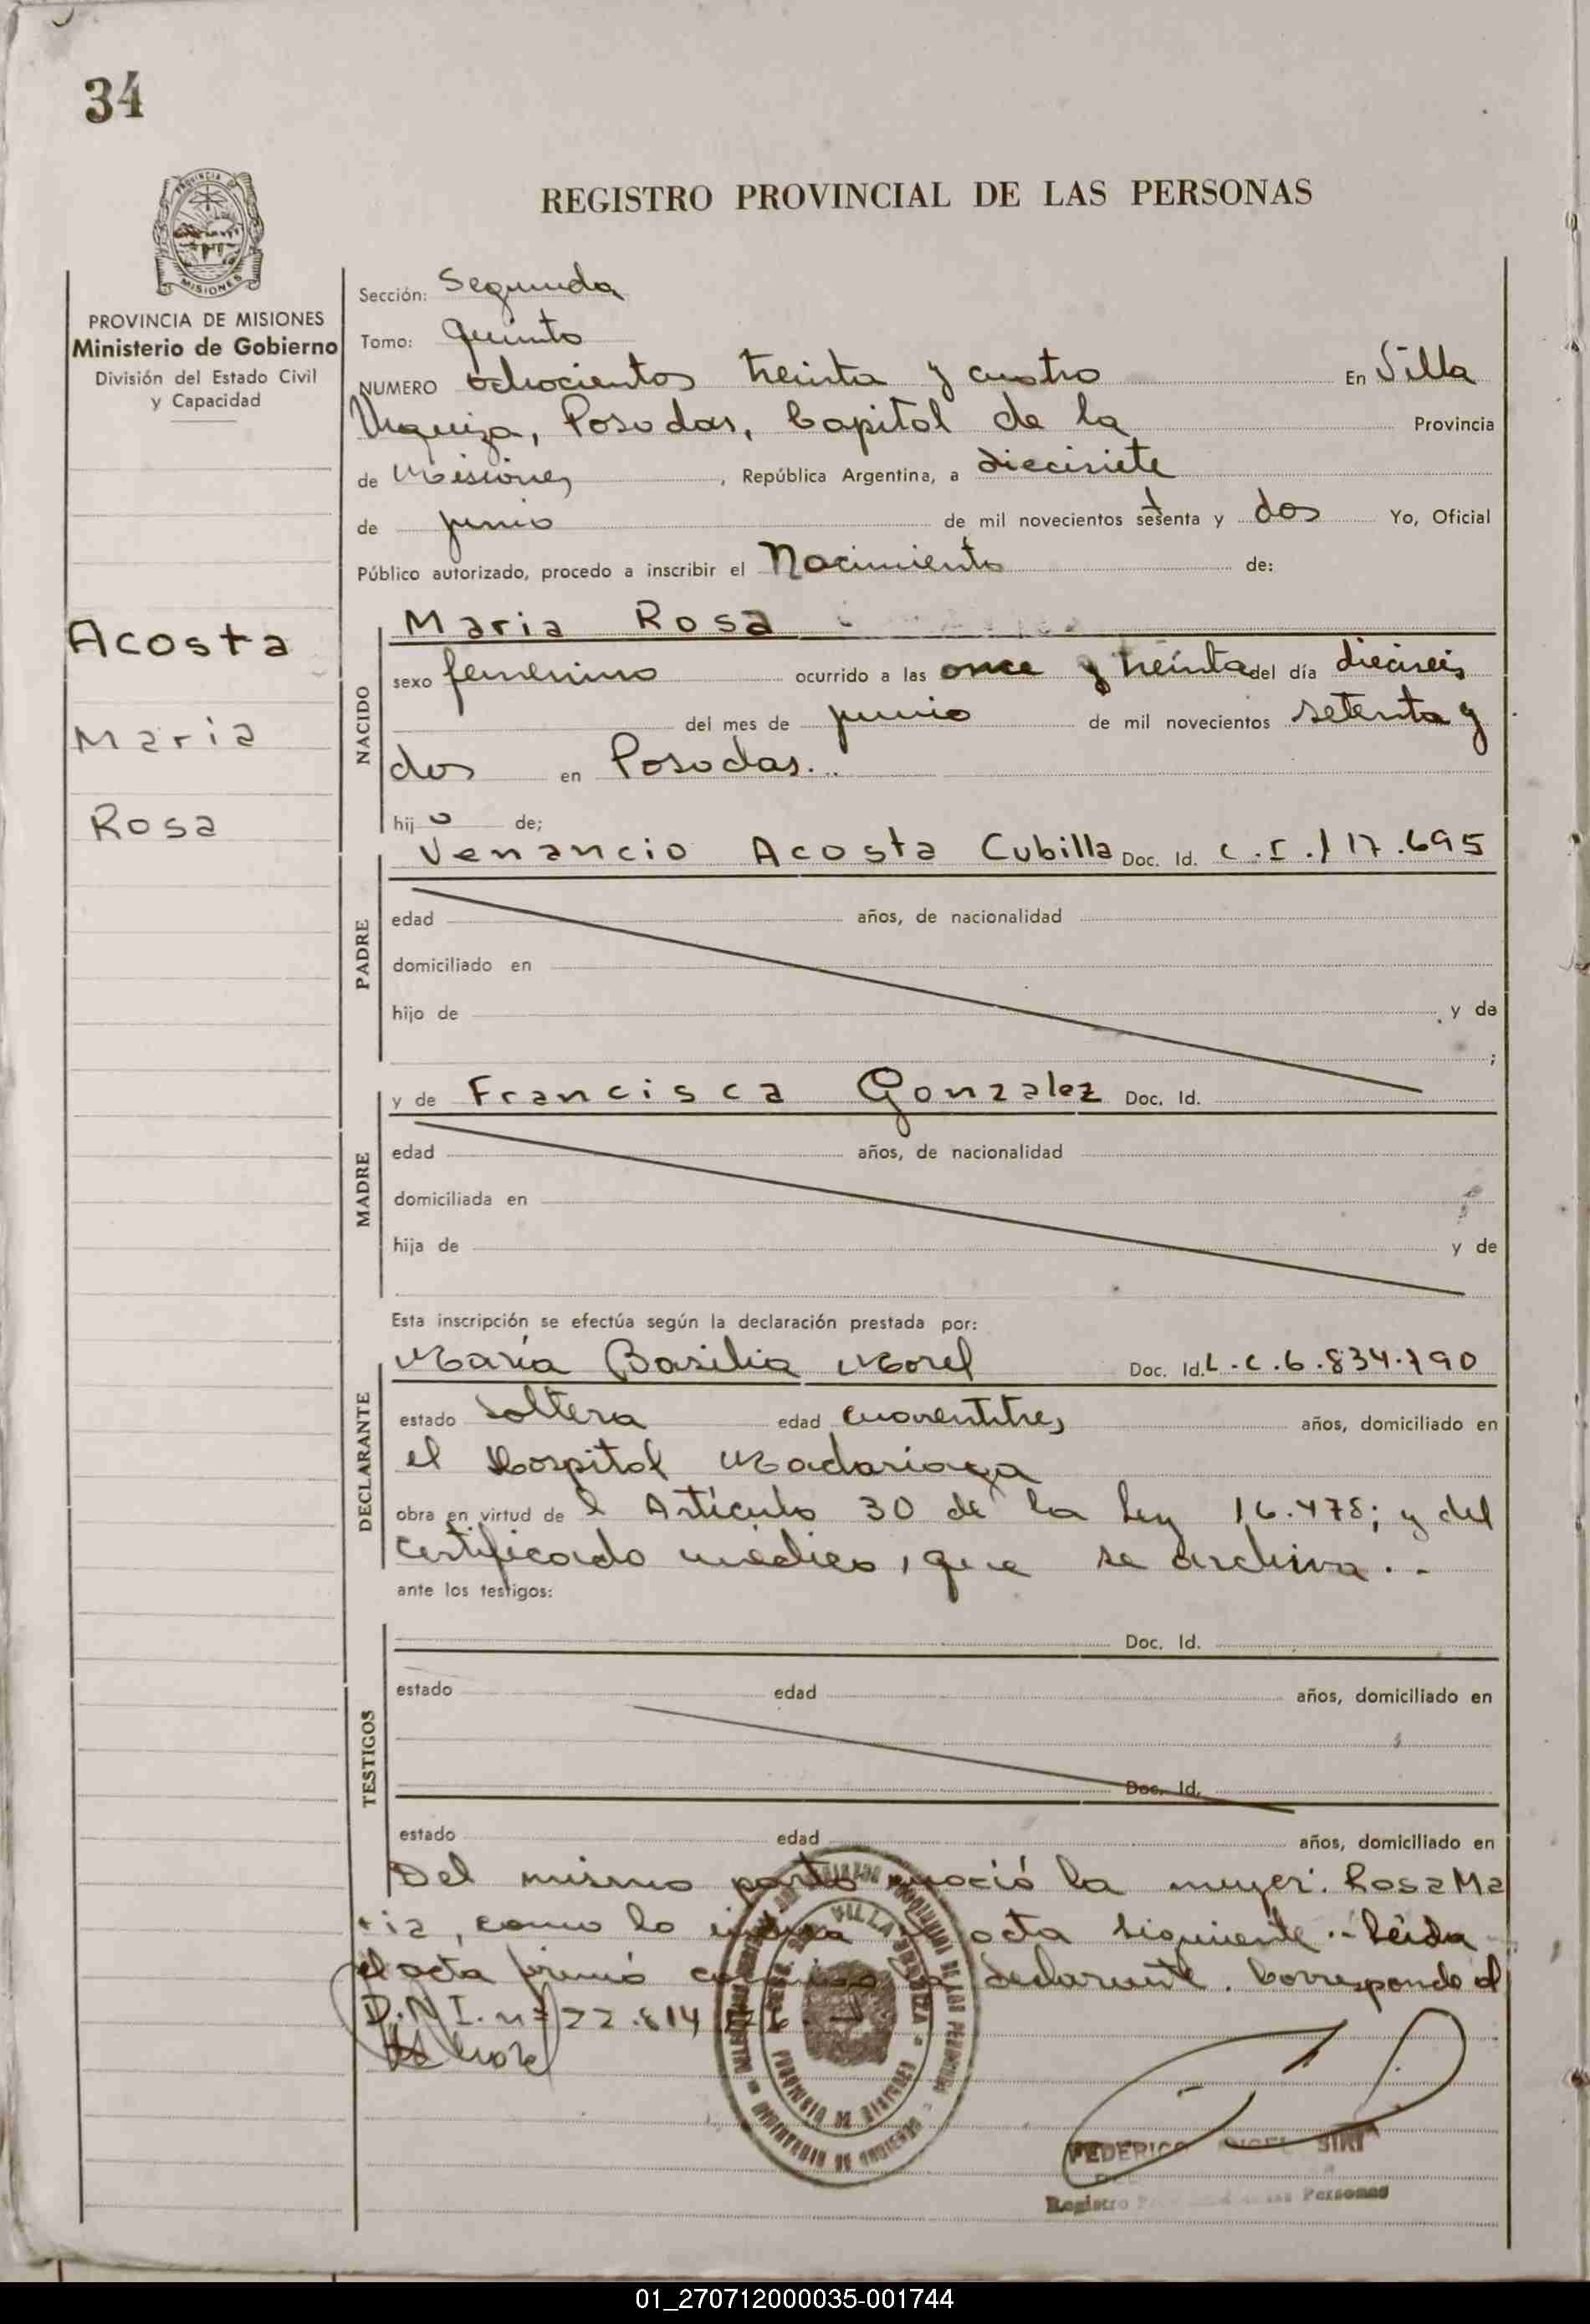 34
REGISTRO PROVINCIAL DE LAS PERSONAS
PROVINCIA DE
MISIONES
PROVINCIA DE MISIONES
Ministerio de Gobierno
División del Estado Civil
y Capacidad
Acosta
Maria
Rosa
Sección: Segunda
Tomo: Quinto
NUMERO ochocientos treinta y cuatro En Villa
Urquiza, Posadas, Capital de la Provincia
de Misiones, República Argentina, a diecisiete
de junio de mil novecientos setenta y dos Yo, Oficial
Público autorizado, procedo a inscribir el Nacimiento de:
NACIDO
Maria Rosa
sexo femenino ocurrido a las once y treinta del día dieciseis
del mes de junio de mil novecientos setenta y
dos en Posadas...
hij a de;
PADRE
Venancio Acosta Cubilla Doc. Id. C.I. 117.695
edad años, de nacionalidad
domiciliado en
hijo de y de
;
MADRE
y de Francisca Gonzalez Doc. Id.
edad años, de nacionalidad
domiciliada en
hija de y de
Esta inscripción se efectúa según la declaración prestada por:
DECLARANTE
María Basilia Morel Doc. Id. L.C. 6.834.790
estado soltera edad cuarentitres años, domiciliado en
el Hospital Madariaga
obra en virtud de l Artículo 30 de la Ley 16.478; y del
certificado médico, que se archiva..-
ante los testigos:
TESTIGOS
Doc. Id.
estado edad años, domiciliado en
Doc. Id.
estado edad años, domiciliado en
Del mismo parto nació la mujer: Rosa Ma
ria, como lo acta siguiente.- Leída
el acta firmó la declarante. Corresponde al
D.N.I. nº 22.814
Morel
VILLA URQUIZA
FEDERICO ANGEL SIRI
Registro Personas
01_270712000035-001744